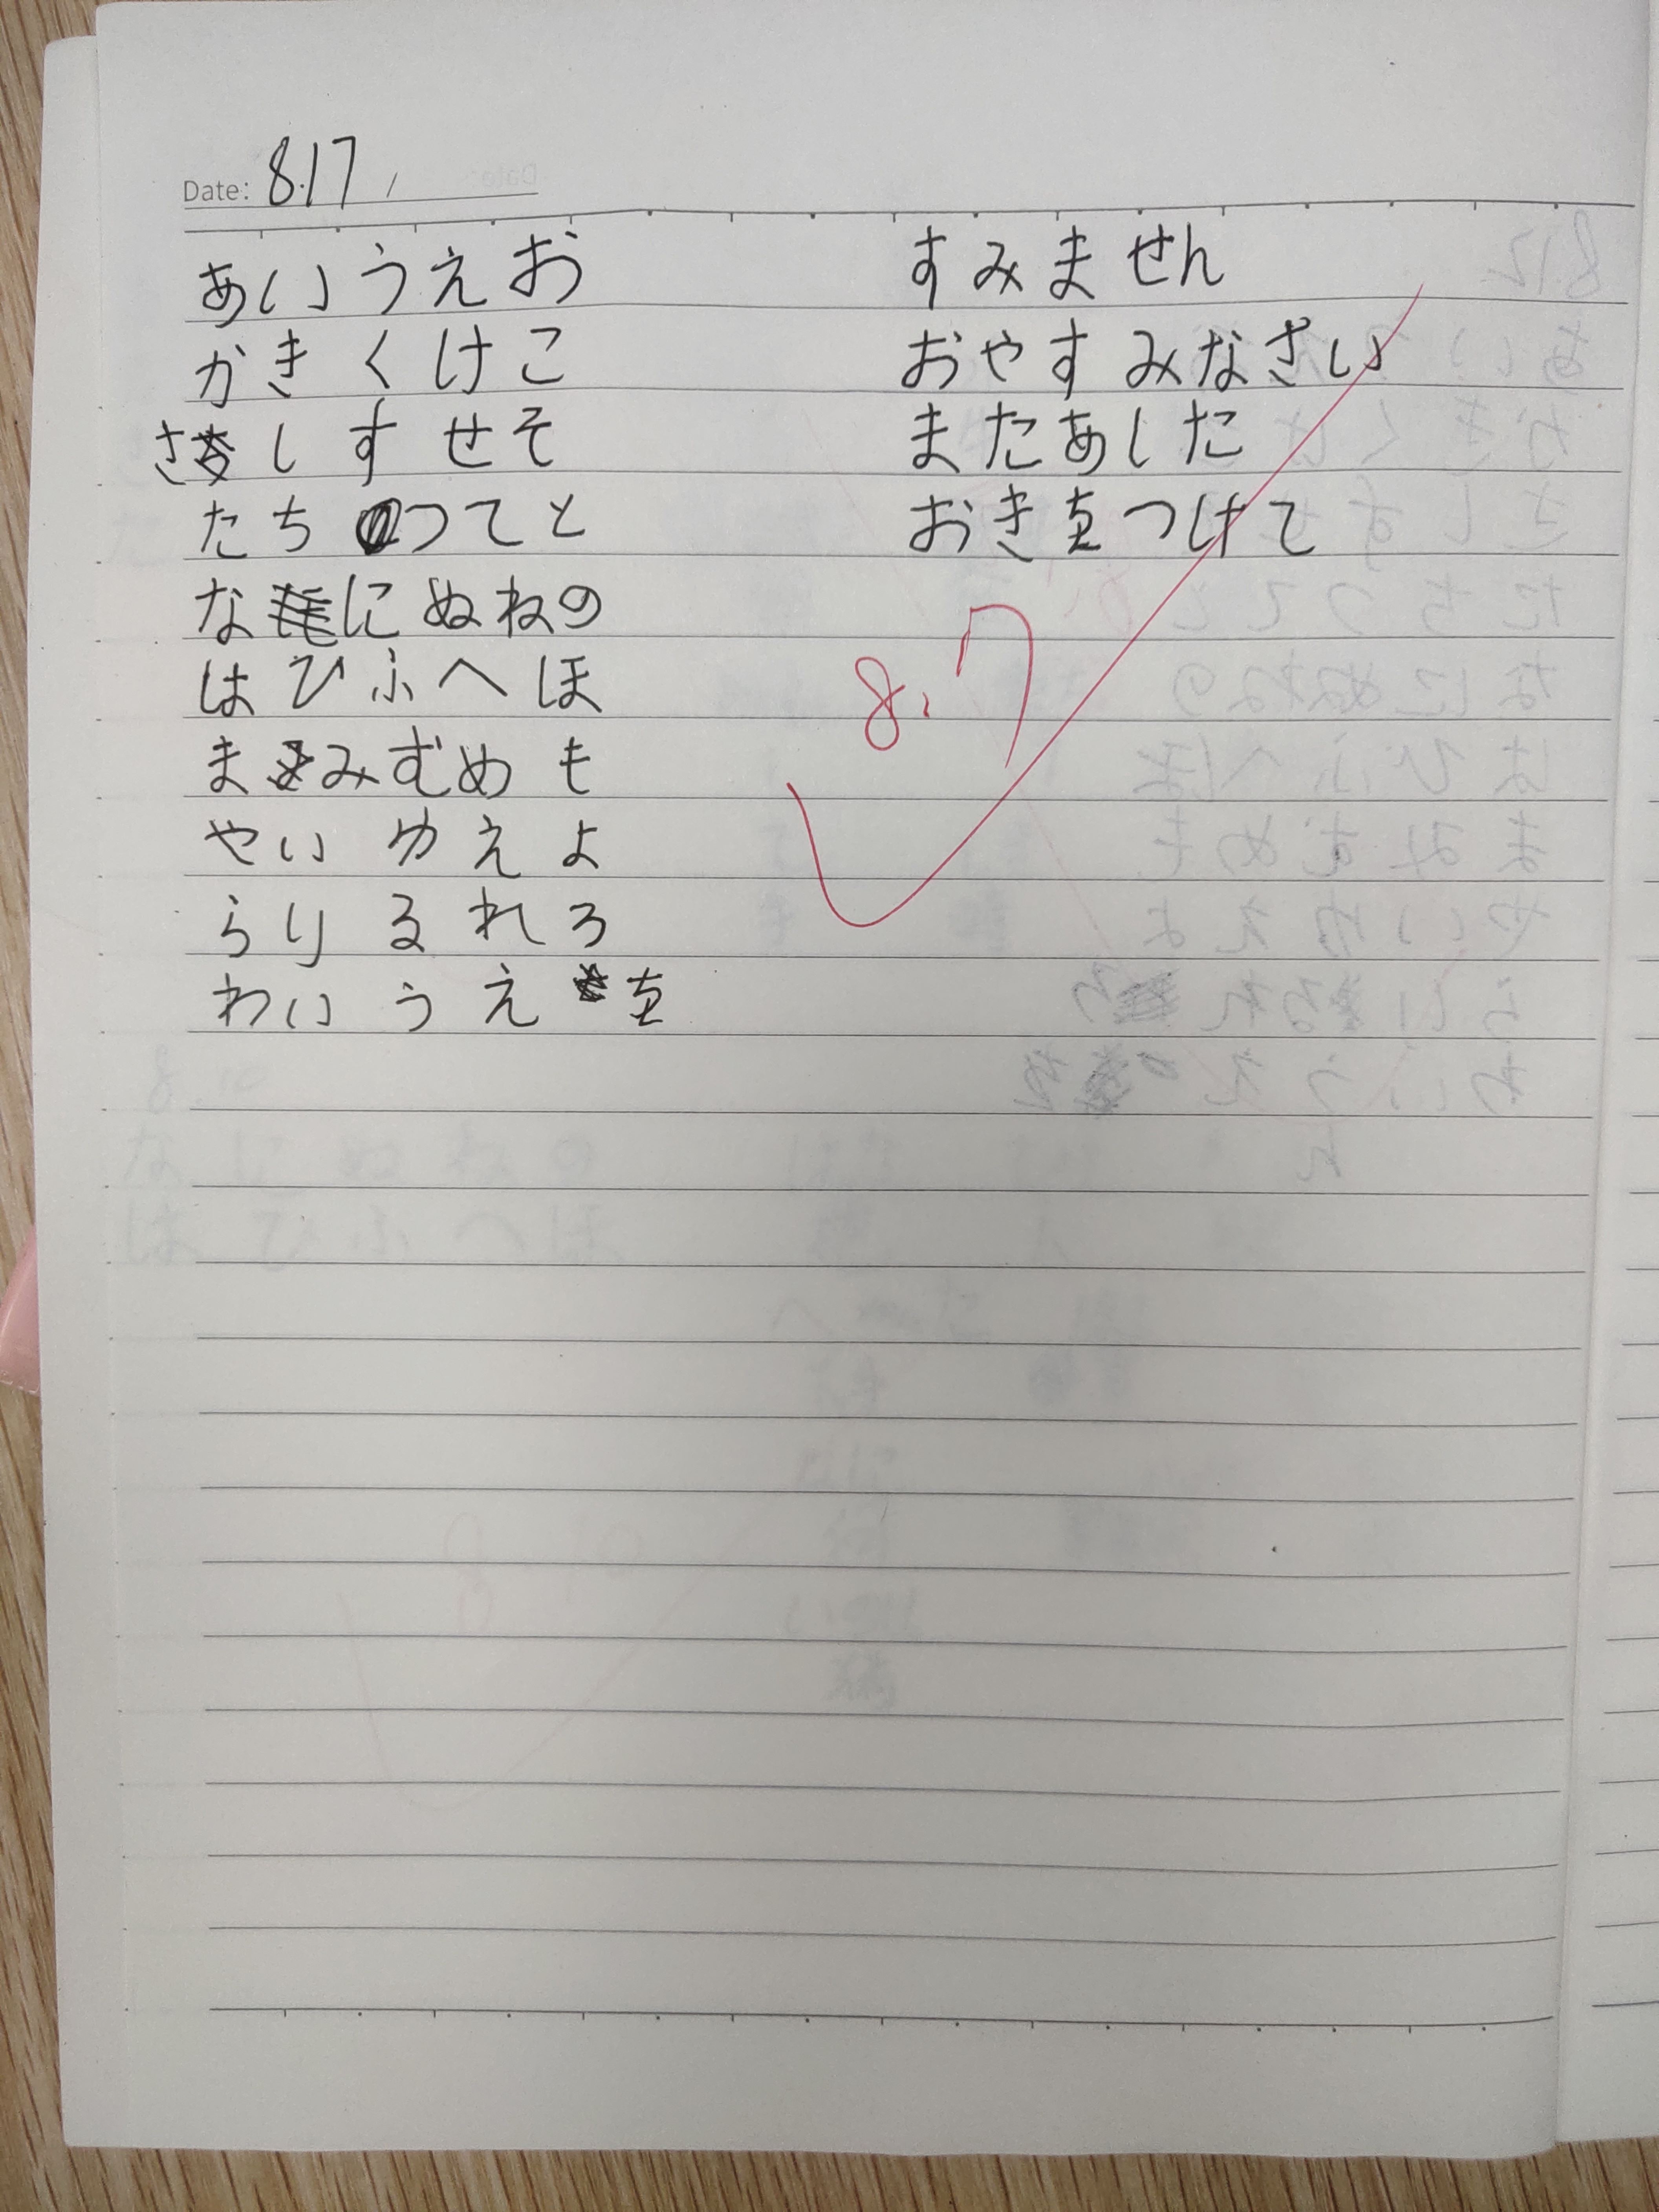 Date: 8.17
あいうえお
かきくけこ
さしすせそ
たちつてと
なにぬねの
はひふへほ
まみむめも
やいゆえよ
らりるれろ
わいうえを
すみません
おやすみなさい
またあした
おきをつけて
8.7